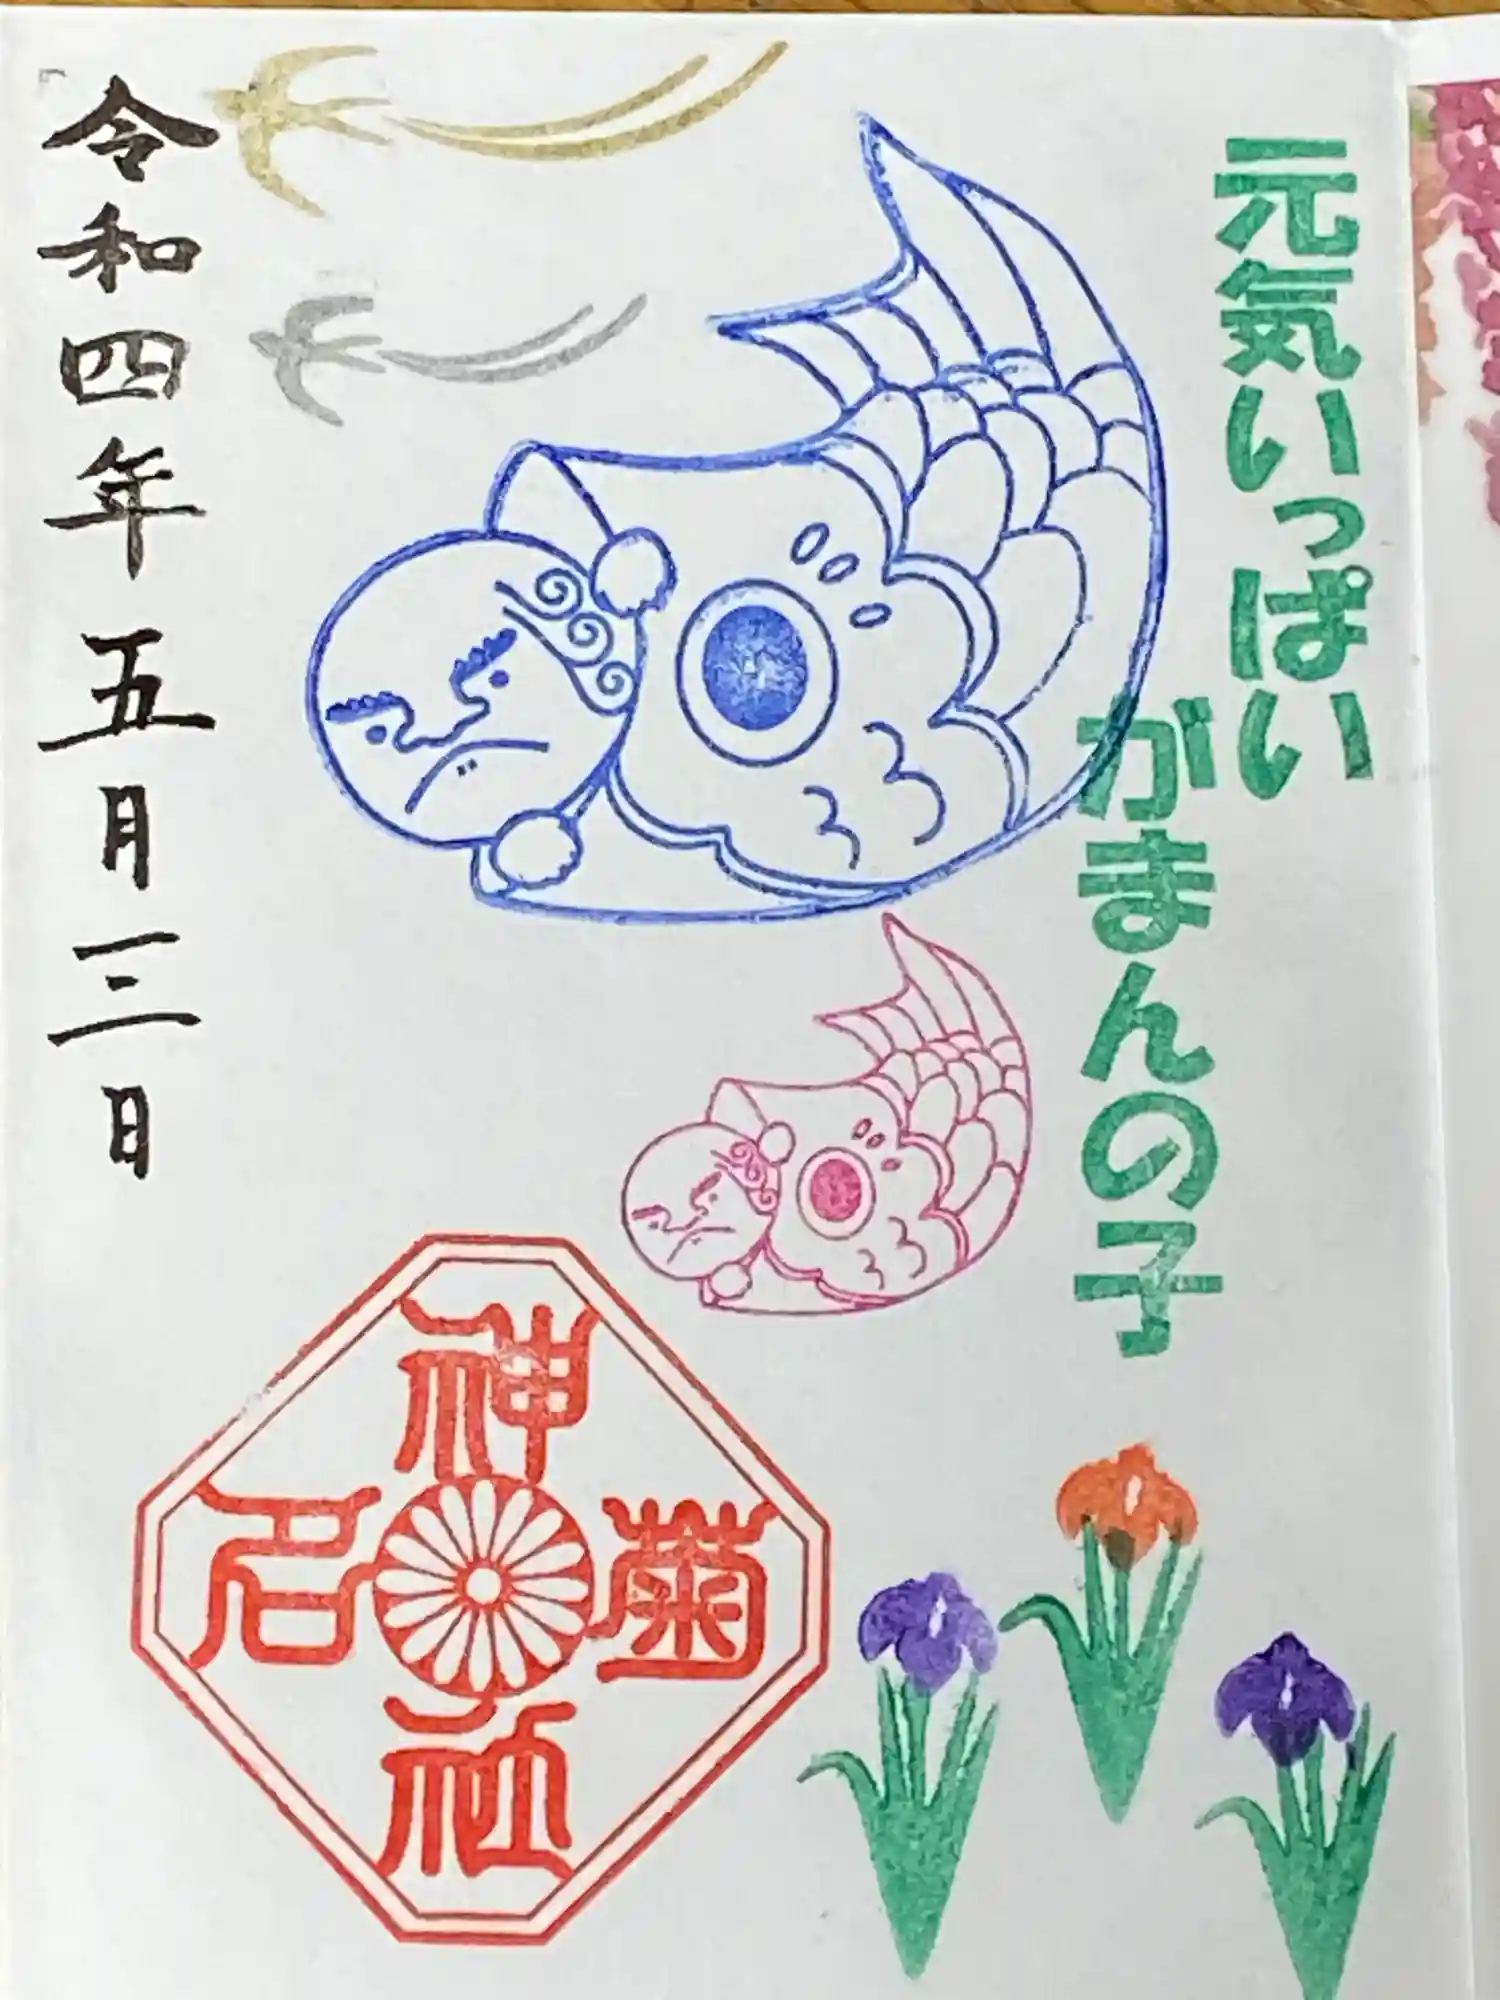 元気いっぱい
がまんの子
令和四年五月三日
菊名神社